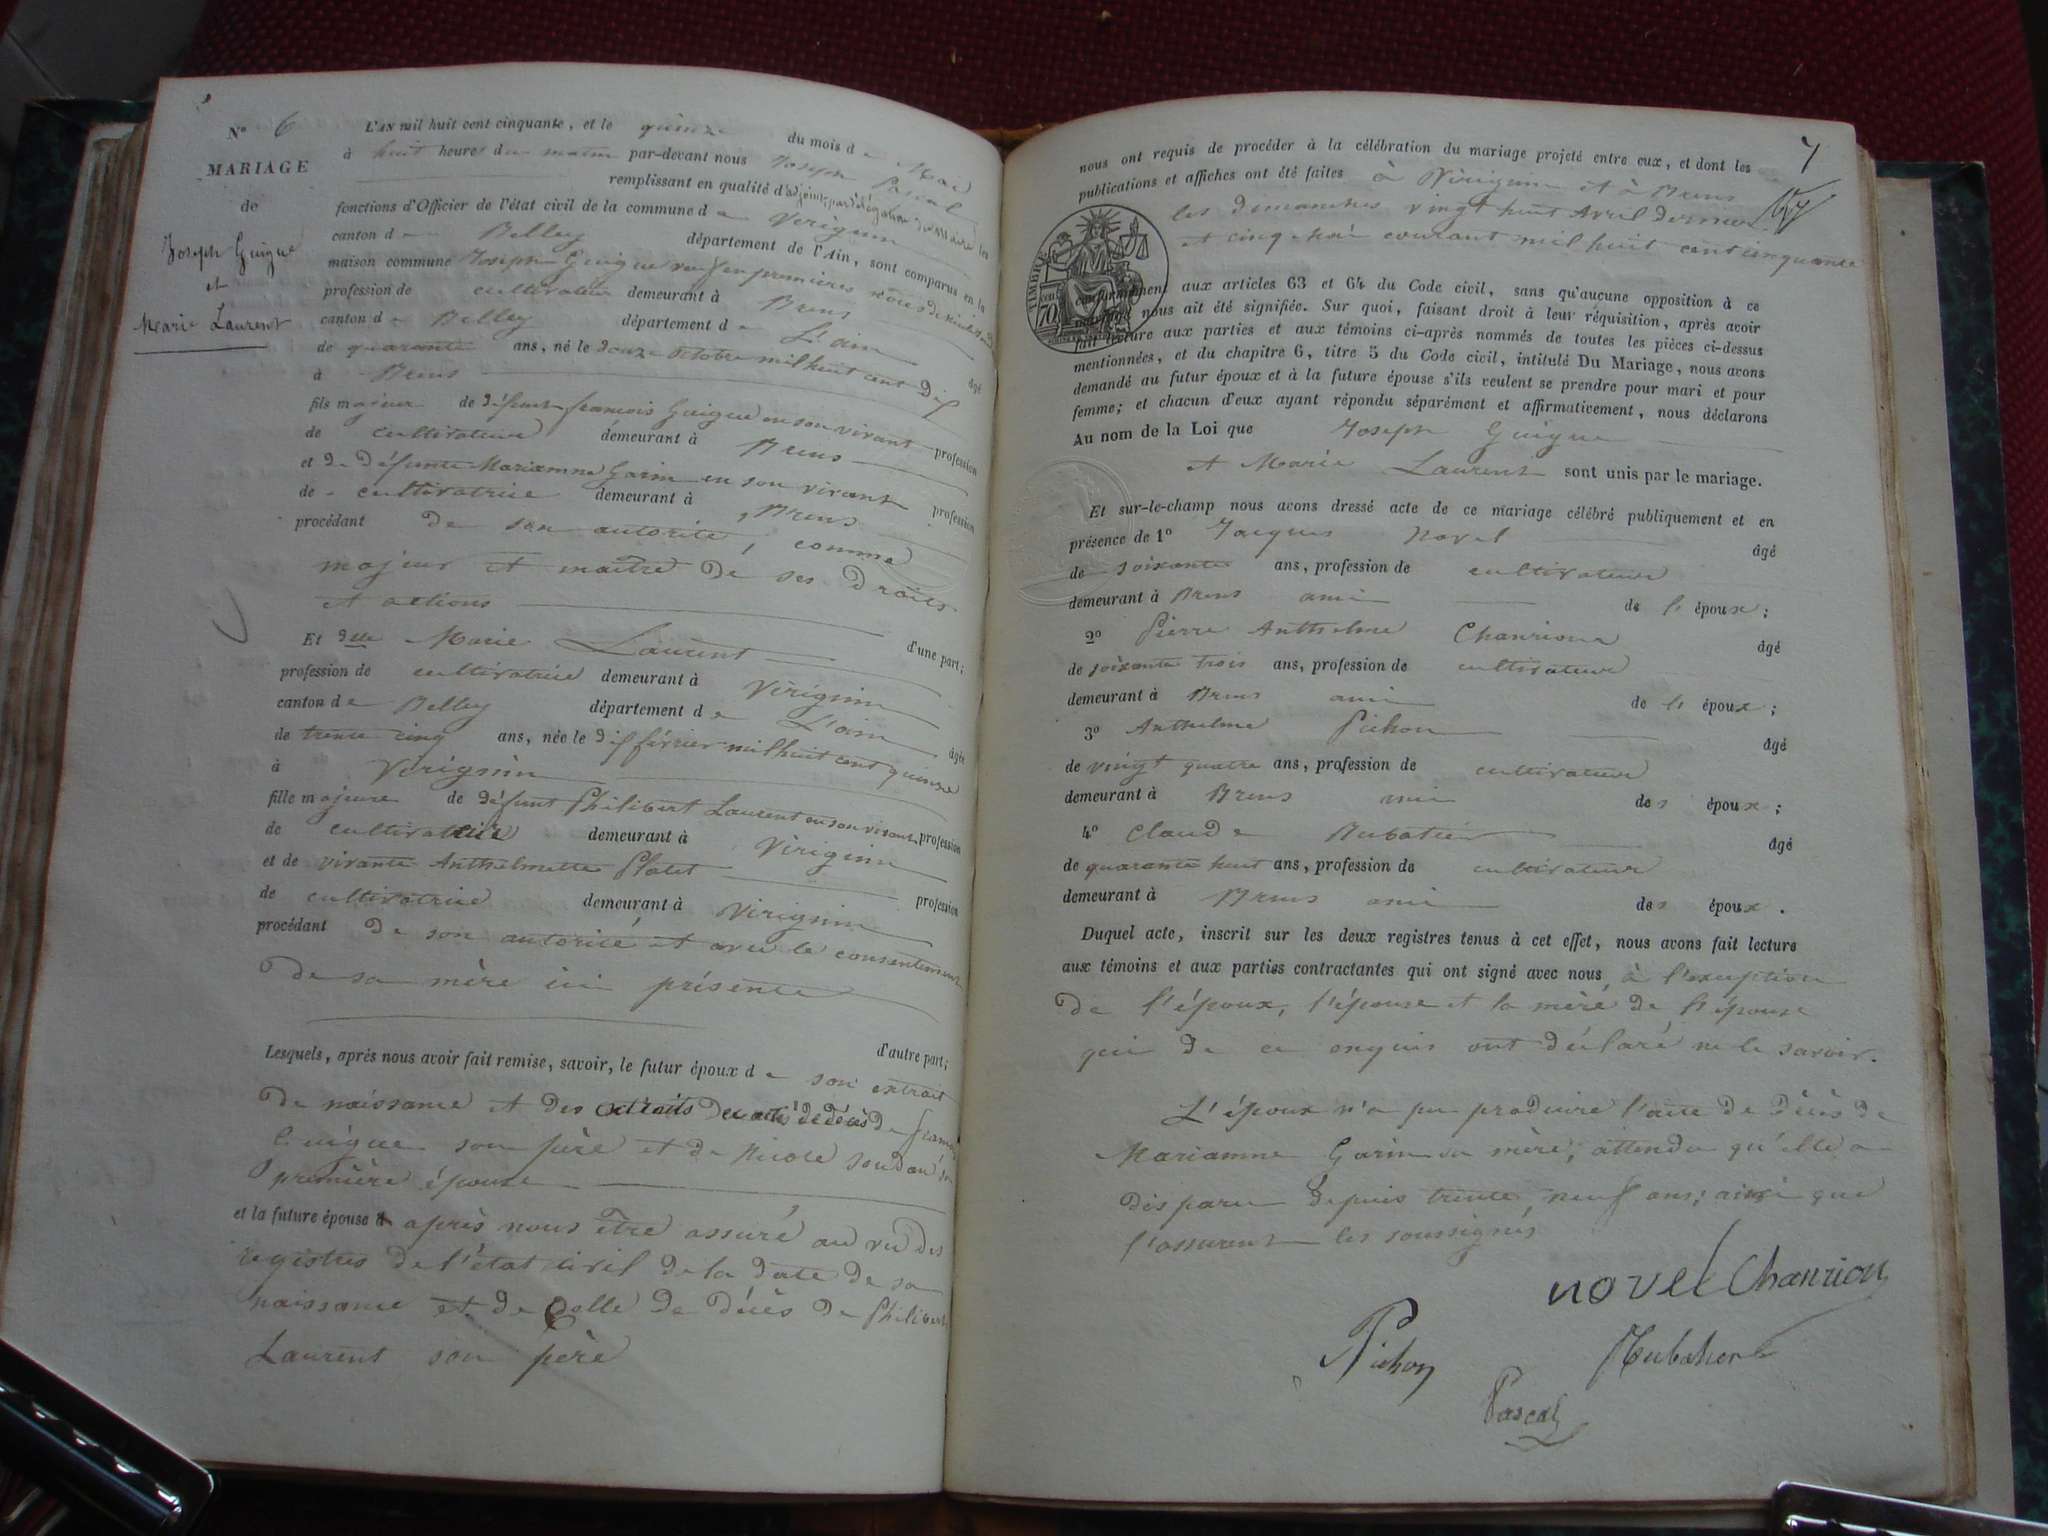 N° 6
MARIAGE
de
Joseph Guigue
et
Marie Laurent
L'AN mil huit cent cinquante, et le quinze du mois de Mai
à huit heures du matin par-devant nous Joseph Pascal
remplissant en qualité d'adjoint par délégation du Maire les
fonctions d'Officier de l'état civil de la commune de Virignin
canton de Belley département de l'Ain, sont comparus en la
maison commune Joseph Guigue veuf en premières noces de Nicole
profession de cultivateur demeurant à Brens
canton de Belley département de L'ain âgé
de quarante ans, né le douze octobre mil huit cent dix
à Brens
fils majeur de défunt françois Guigue en son vivant profession
de cultivateur demeurant à Brens
et de défunte Marianne Garin en son vivant profession
de cultivatrice demeurant à Brens
procédant de son autorité, comme
majeur et maître de ses droits
et actions
d'une part;
Et dlle Marie Laurent
profession de cultivatrice demeurant à Virignin
canton de Belley département de L'ain âgée
de trente cinq ans, née le dix février mil huit cent quinze
à Virignin
fille majeure de défunt Philibert Laurent en son vivant profession
de cultivateur demeurant à Virignin
et de vivante Anthelmette Platet profession
de cultivatrice demeurant à Virignin
procédant de son autorité et avec le consentement
de sa mère ici présente
d'autre part;
Lesquels, après nous avoir fait remise, savoir, le futur époux de son extrait
de naissance et des extraits des actes de décès de françois
Guigue son père et de Nicole Soudan sa
première épouse
et la future épouse après nous être assuré au vu des
registres de l'état civil de la date de sa
naissance et de celle de décès de Philibert
Laurent son père
7
nous ont requis de procéder à la célébration du mariage projeté entre eux, et dont les
publications et affiches ont été faites à Virignin et à Brens
les dimanches vingt huit Avril dernier
et cinq Mai courant mil huit cent cinquante
TIMBRE
70
conformément aux articles 63 et 64 du Code civil, sans qu'aucune opposition à ce
mariage nous ait été signifiée. Sur quoi, faisant droit à leur réquisition, après avoir
fait lecture aux parties et aux témoins ci-après nommés de toutes les pièces ci-dessus
mentionnées, et du chapitre 6, titre 5 du Code civil, intitulé Du Mariage, nous avons
demandé au futur époux et à la future épouse s'ils veulent se prendre pour mari et pour
femme; et chacun d'eux ayant répondu séparément et affirmativement, nous déclarons
Au nom de la Loi que Joseph Guigue
et Marie Laurent sont unis par le mariage.
Et sur-le-champ nous avons dressé acte de ce mariage célébré publiquement et en
présence de 1° Jacques Novel âgé
de soixante ans, profession de cultivateur
demeurant à Brens ami de l'époux;
2° Pierre Anthelme Chanrion âgé
de soixante trois ans, profession de cultivateur
demeurant à Brens ami de l'époux;
3° Anthelme Pichon âgé
de vingt quatre ans, profession de cultivateur
demeurant à Brens ami des époux;
4° Claude Rubatier âgé
de quarante huit ans, profession de cultivateur
demeurant à Brens ami des époux.
Duquel acte, inscrit sur les deux registres tenus à cet effet, nous avons fait lecture
aux témoins et aux parties contractantes qui ont signé avec nous, à l'exception
de l'époux, l'épouse et la mère de l'épouse
qui de ce enquis ont déclaré ne le savoir.
L'époux n'a pu produire l'acte de décès de
Marianne Garin sa mère; attendu qu'elle a
disparu depuis trente neuf ans; ainsi que
l'assurent les soussignés
novel Chanrion
Pichon Rubatier
Pascal